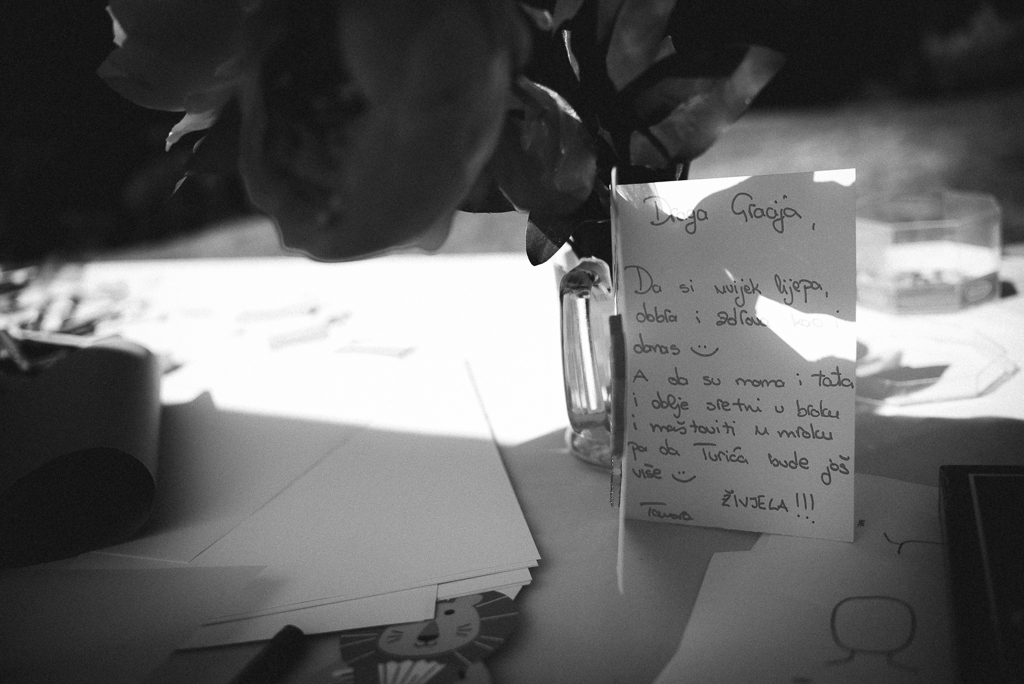 Draga Gracija,
Da si uvijek lijepa,
dobra i zdrava kao i
danas :)
A da su mama i tata
i dalje sretni u braku
i maštoviti u mraku
pa da Turića bude još
više :)
ŽIVJELA!!!
Tamara